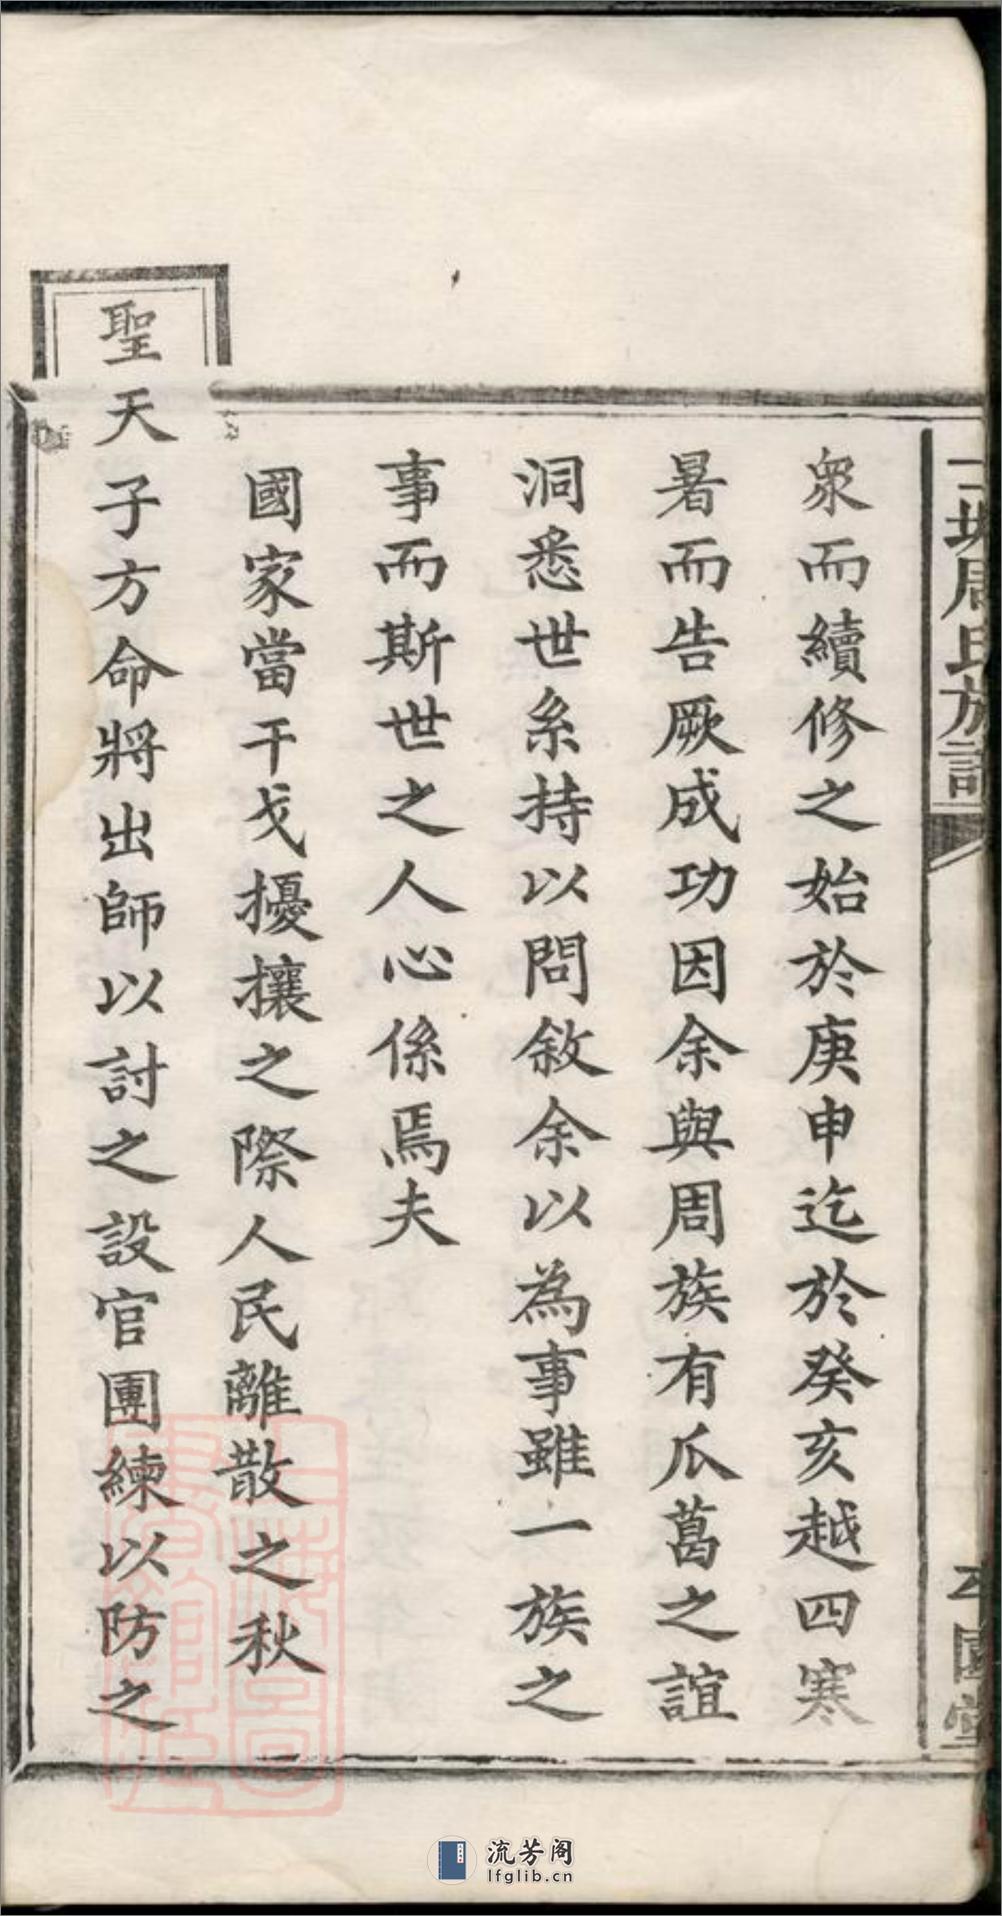 眾而續修之始於庚申迄於癸亥越四寒
暑而告厥成功因余與周族有瓜葛之誼
洞悉世系持以問敘余以為事雖一族之
事而斯世之人心係焉夫
國家當干戈擾攘之際人民離散之秋
聖天子方命將出師以討之設官團練以防之
周氏族譜
流芳阁
lfglib.cn